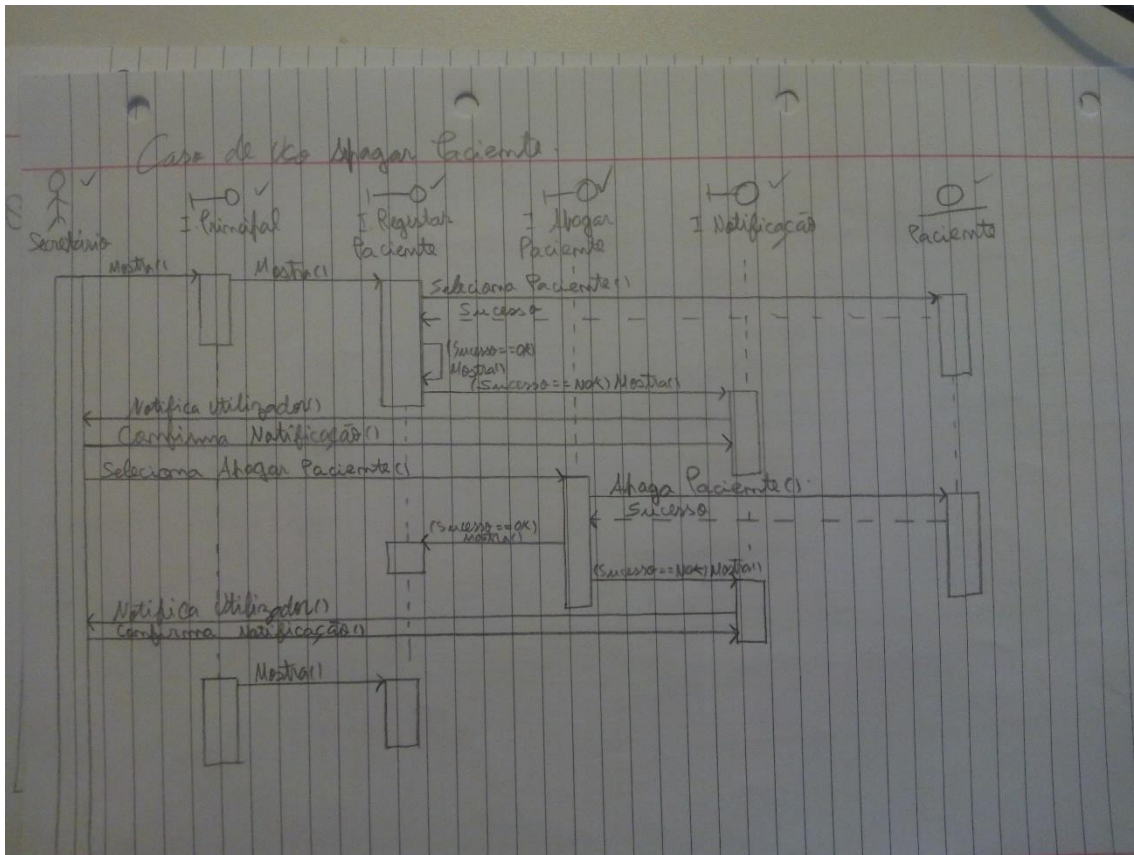 Caso de Uso Apagar Paciente
Secretário
I Principal
I Registar
Paciente
I Apagar
Paciente
I Notificação
Paciente
Mostra()
Mostra()
Seleciona Paciente()
Sucesso
(Sucesso==OK)
Mostra()
(Sucesso==NOK) Mostra()
Notifica Utilizador()
Confirma Notificação()
Seleciona Apagar Paciente()
Apaga Paciente()
Sucesso
(Sucesso==OK)
Mostra()
(Sucesso==NOK) Mostra()
Notifica Utilizador()
Confirma Notificação()
Mostra()